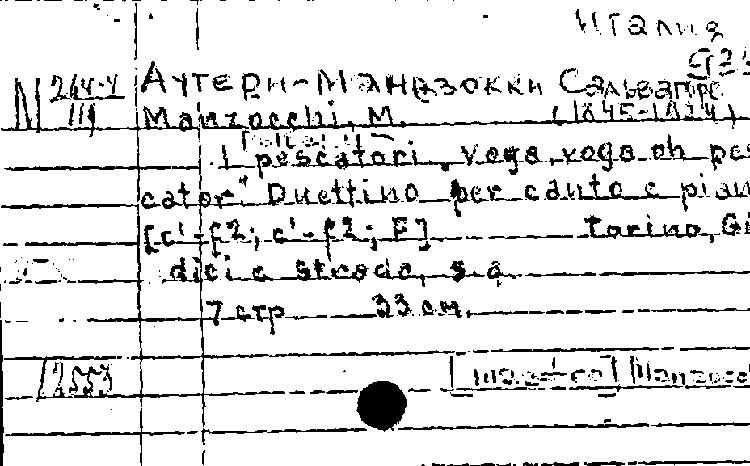 Италия
N 264-4 Аутери-Маназокки Сальваторе
III Manzocchi, M. (1845-1924)
I pescatori „Voga, voga oh pes
cator" Duettino per canto e pian
[c'-f2; c'-f2; F] Torino, Gi
dici e Strada, s.a.
7 стр 33 см.
12553 [maestro] Manzocc